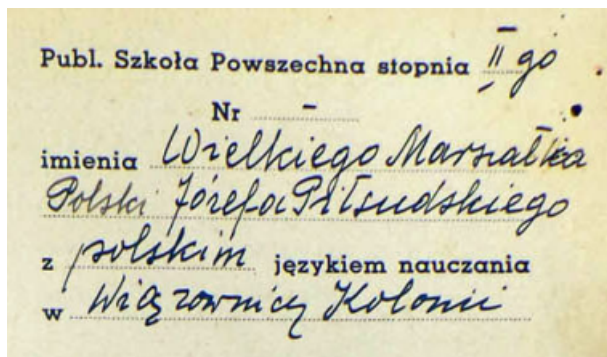 Publ. Szkoła Powszechna stopnia II go
Nr –
imienia Wielkiego Marszałka
Polski Józefa Piłsudskiego
z polskim językiem nauczania
w Wiązownicy Kolonii